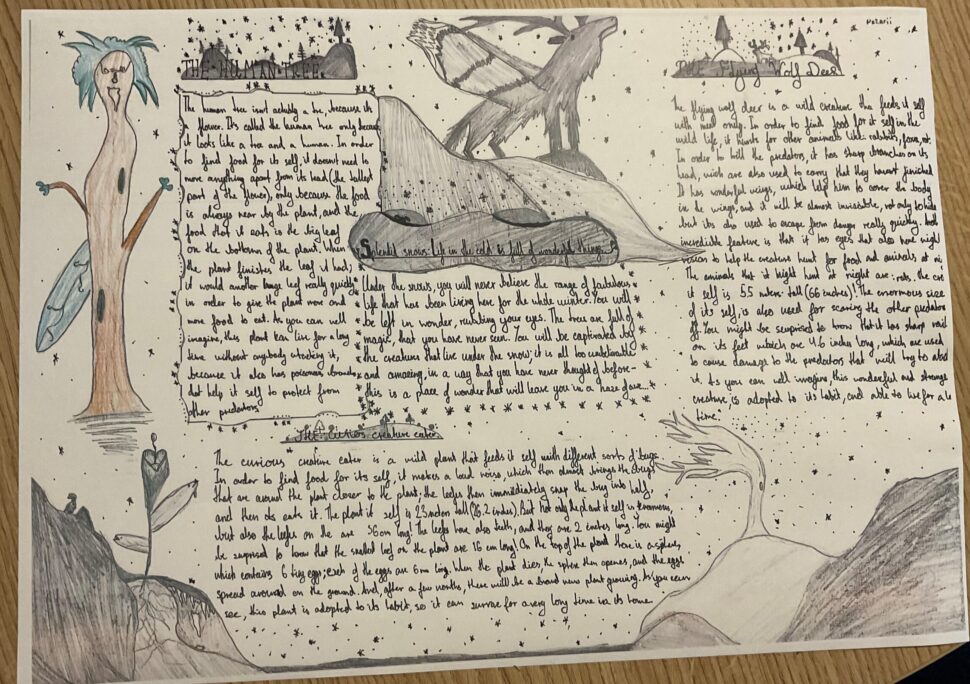 THE HUMAN TREE
The human tree isn't actually a tree, because it's
a flower. It's called the human tree only because
it looks like a tree and a human. In order
to find food for its self, it doesnt need to
move anything apart from its head (the tallest
part of the flower), only because the food
is always near by the plant, and the
food that it eats is the big leaf
on the bottom of the plant. when
the plant finishes the leaf it had,
it would another large leaf really quickly
in order to give the plant more and
more food to eat. As you can well
imagine, this plant can live for a long
time without anybody attacking it,
because it also has poisonous branches
that help it self to protect from
other predators
Splendid snows: Life in the cold is full of wonderful things
Under the snows, you will never believe the range of fabulous
life that has been living here for the whole winter. You will
be left in wonder, rubbing your eyes. The trees are full of
magic, that you have never seen. You will be captivated by
the creatures that live under the snow; it is all too unbelievable
and amazing, in a way that you have never thought of before-
this is a place of wonder that will leave you in a haze of awe...
The Flying Wolf Deer
The flying wolf deer is a wild creature that feeds it self
with meat only. In order to find food for it self in the
wild life, it hunts for other animals like: rabbits,
In order to kill the predators, it has sharp branches on its
head, wich are also used to carry that they havent finished
It has wonderful wings, which help him to cover the body
in the wings, and it will be almost invisible, not only to hide
but its also used to escape from danger really quickly.
incredible feature is that it has eyes that also have night
vision to help the creature hunt for food and animals at ni
The animals that it might hunt at night are: rats. the cre
it self is 5.5 meters tall (66 inches)! The enormous size
of its self, is also used for scaring the other predators
off. You might be surprised to know that it has sharp nail
on its feet which are 4.6 inches long, which are used
to cause damage to the predators that will try to
it. As you can well imagine, this wonderful and strange
creature, is adopted to its habit, and able to live for a lo
time.
The curios creature eater
The curious creature eater is a wild plant that feeds it self with different sorts of bugs.
In order to find food for its self, it makes a loud noise, which then almost brings the bugs
that are around the plant closer to the plant; the leafes then immediately snap the bug into half,
and then it eats it. The plant it self is 2.3 meters tall (26.2 inches). But not only the plant it self is enormous,
but also the leafes on the are 36 cm long. The leafs have also teeth, and they are 2 inches long. You might
be surprised to know that the smallest leaf on the plant are 16 cm long. On the top of the plant there is a sphere,
which contains 6 tiny eggs; each of the eggs are 6 m long. When the plant dies, the sphere then openes, and the eggs
spread around on the ground. And, after a few months, there will be a brand new plant growing. As you can
see, this plant is adopted to its habit, so it can survive for a very long time in its home.